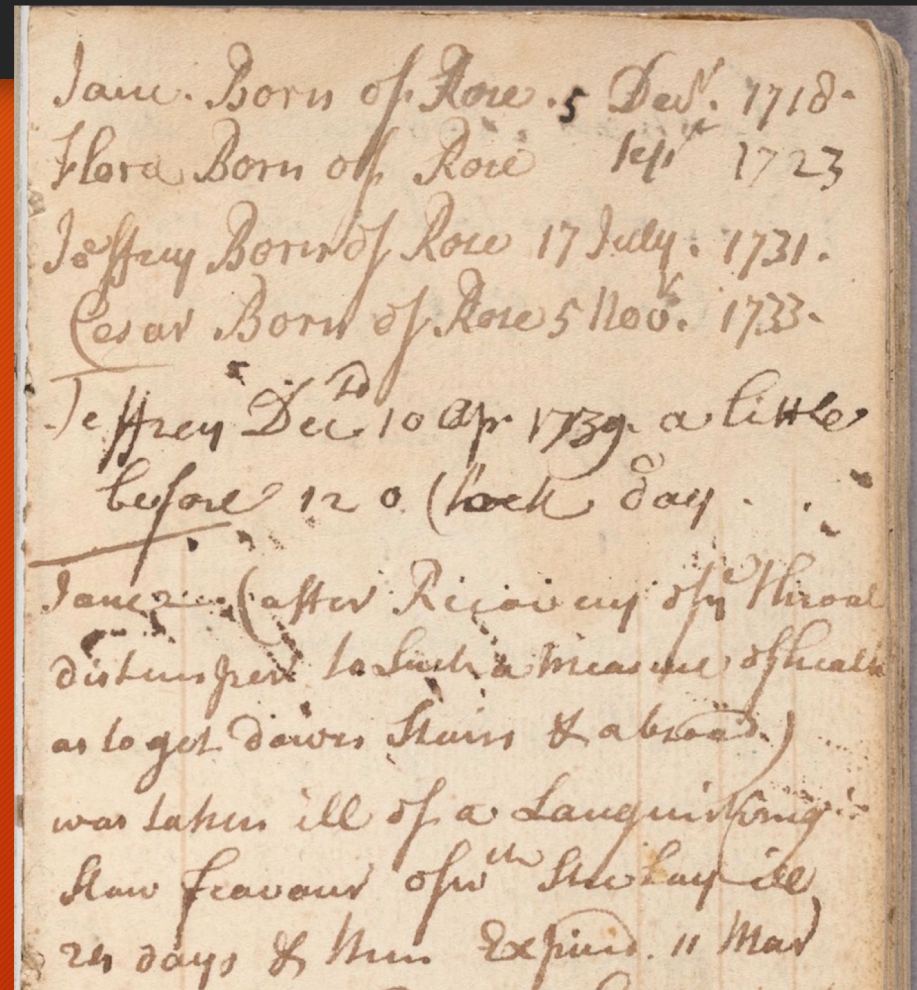 Jane. Born of Rose. 5 Decr. 1718.
Flora Born of Rose 1723
Jeffrey Born of Rose 17 July. 1731.
Cesar Born of Rose 5 Novr. 1733.
Jeffrey Decd 10 Apr 1739. a little
before 12 o Clock day.
Jane (after Recovery of ye Throat
distemper to Such a measure of health
as to get down Stairs & abroad.)
was taken ill of a Languishing
Slow feavour of wch She Lay ill
days & then Expired. 11 Mar